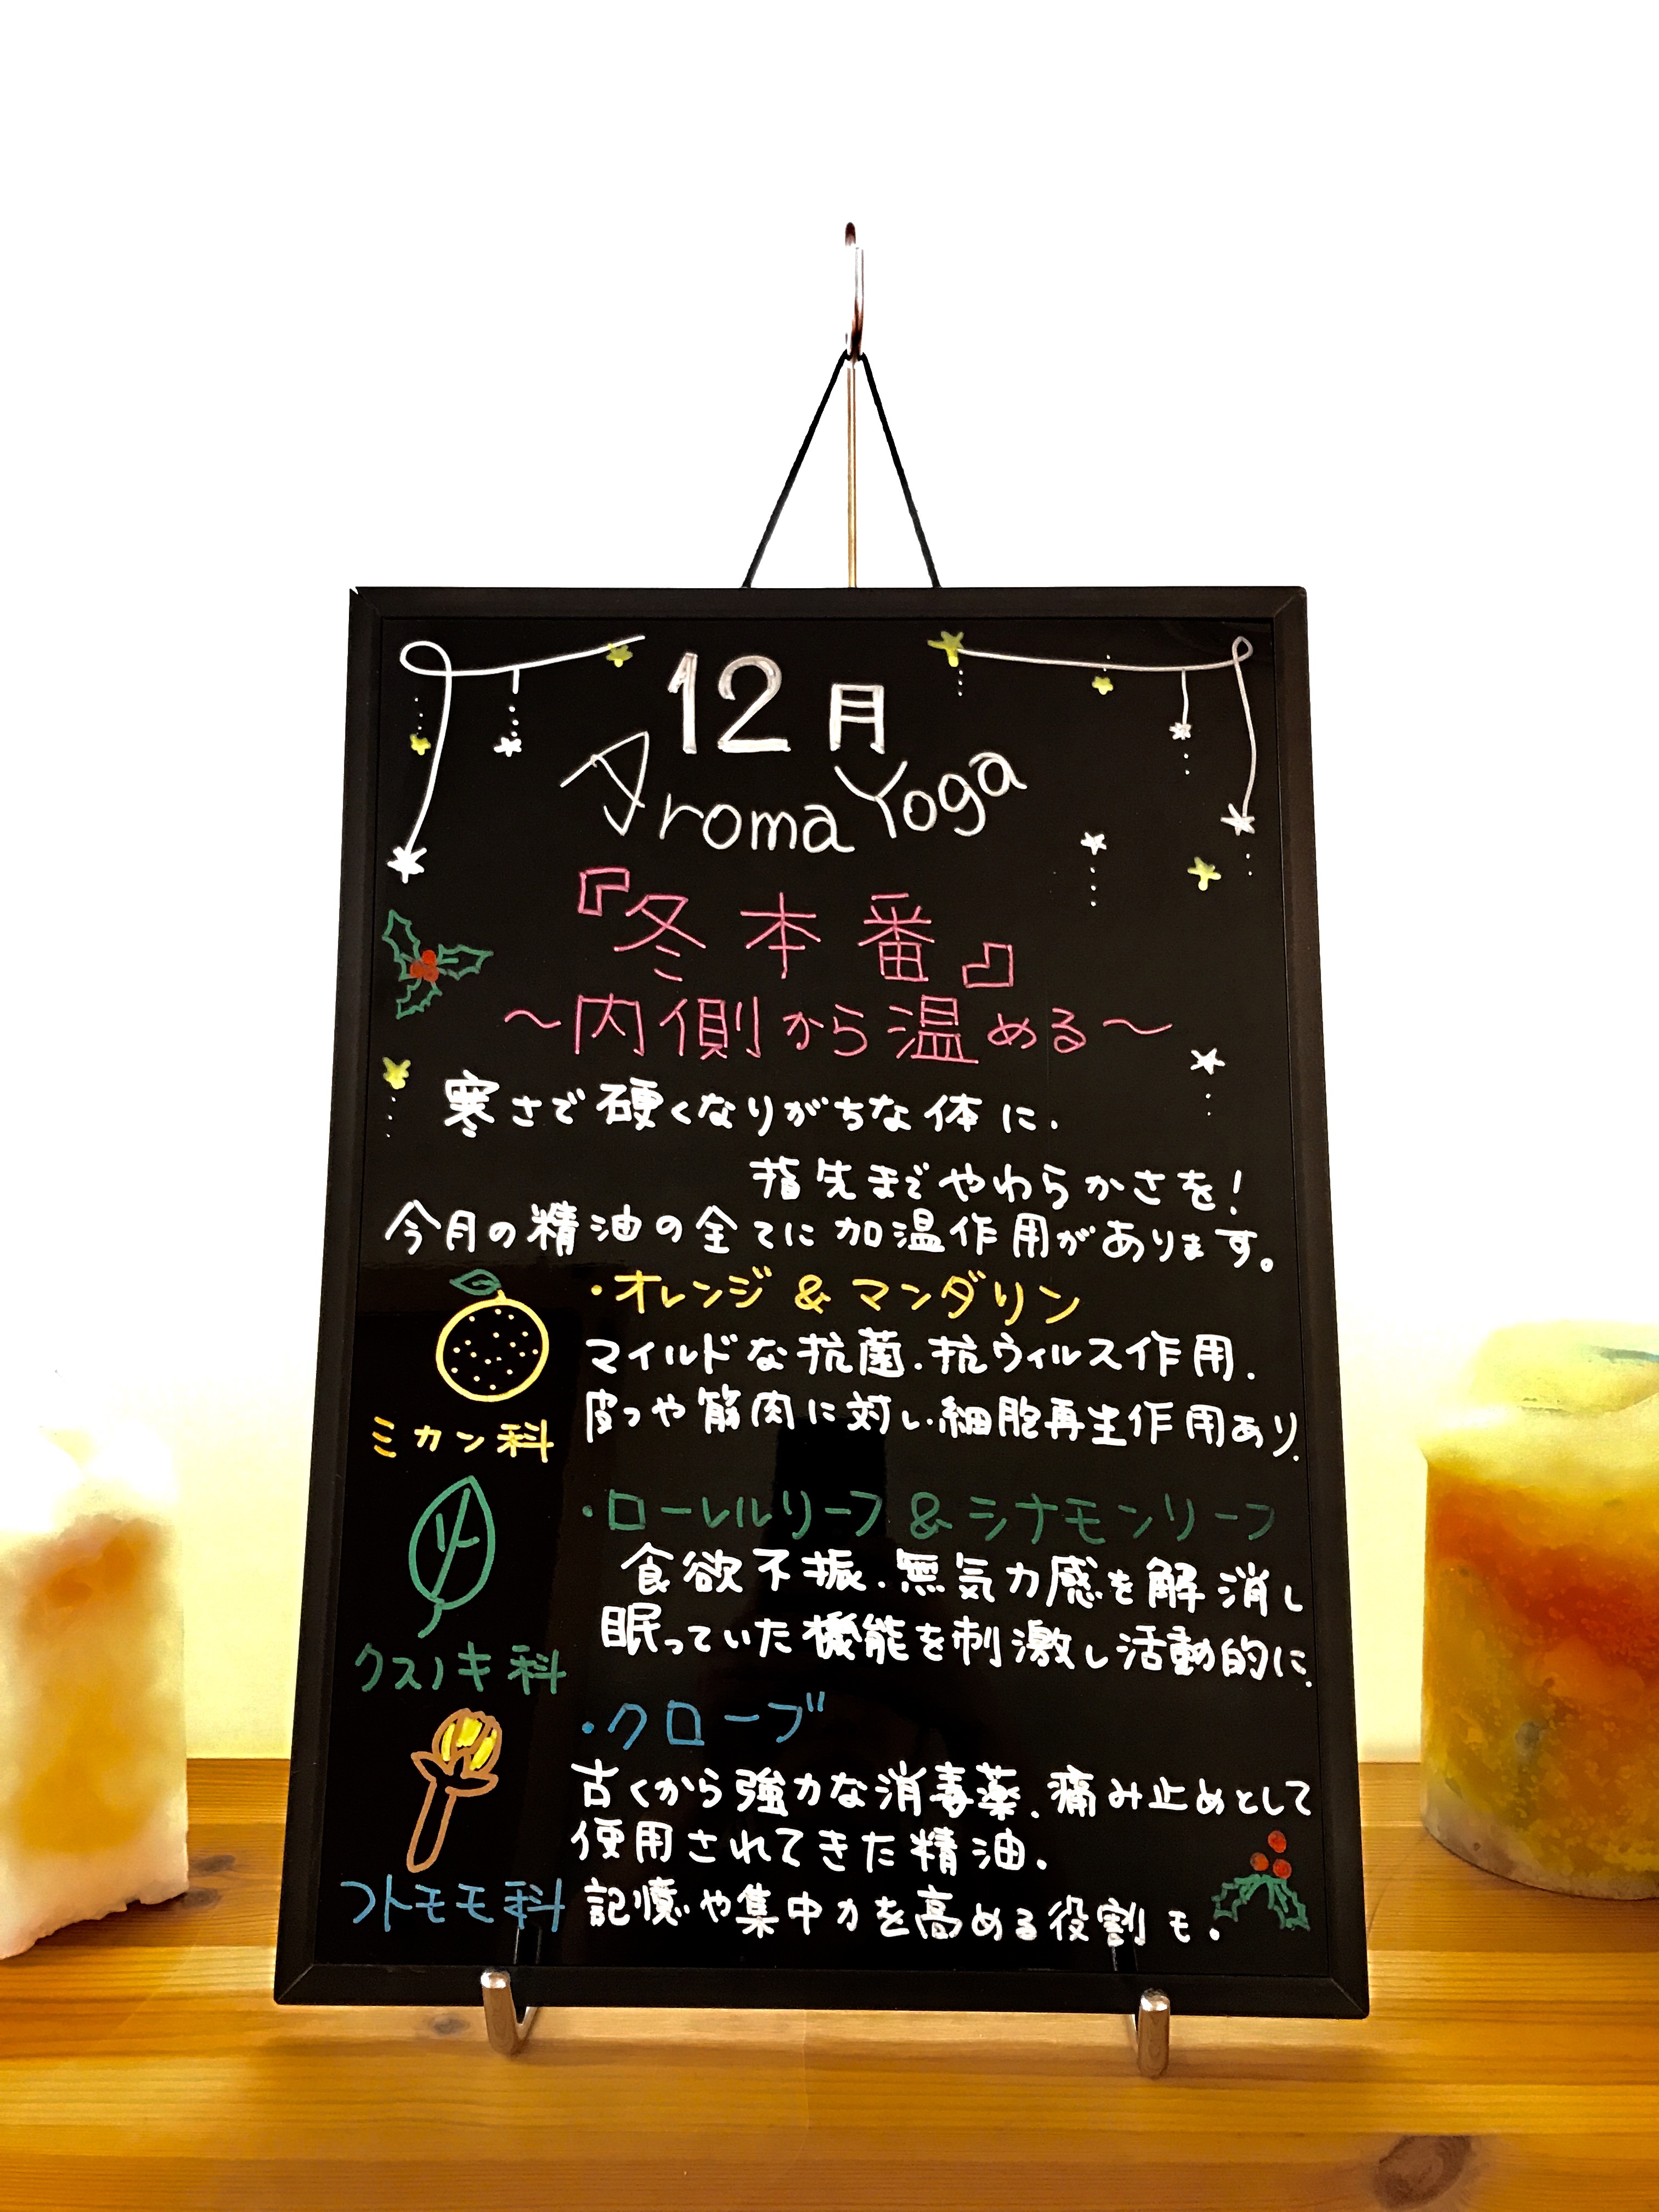 12月
Aroma Yoga
『冬本番』
～内側から温める～
寒さで硬くなりがちな体に.
指先までやわらかさを!
今月の精油の全てに加温作用があります。
・オレンジ & マンダリン
マイルドな抗菌.抗ウィルス作用.
皮フや筋肉に対し.細胞再生作用あり.
ミカン科
・ローレルリーフ & シナモンリーフ
食欲不振.無気力感を解消し
眠っていた機能を刺激し活動的に.
クスノキ科
・クローブ
古くから強力な消毒薬.痛み止めとして
使用されてきた精油.
フトモモ科
記憶や集中力を高める役割も.